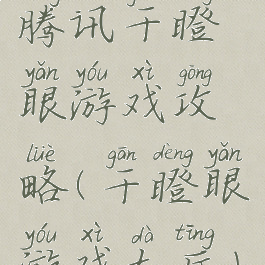 腾讯干瞪
yǎn yóu xì gōng
眼游戏攻
lüè gān dèng yǎn
略(干瞪眼
yóu xì dà tīng
游戏大厅)